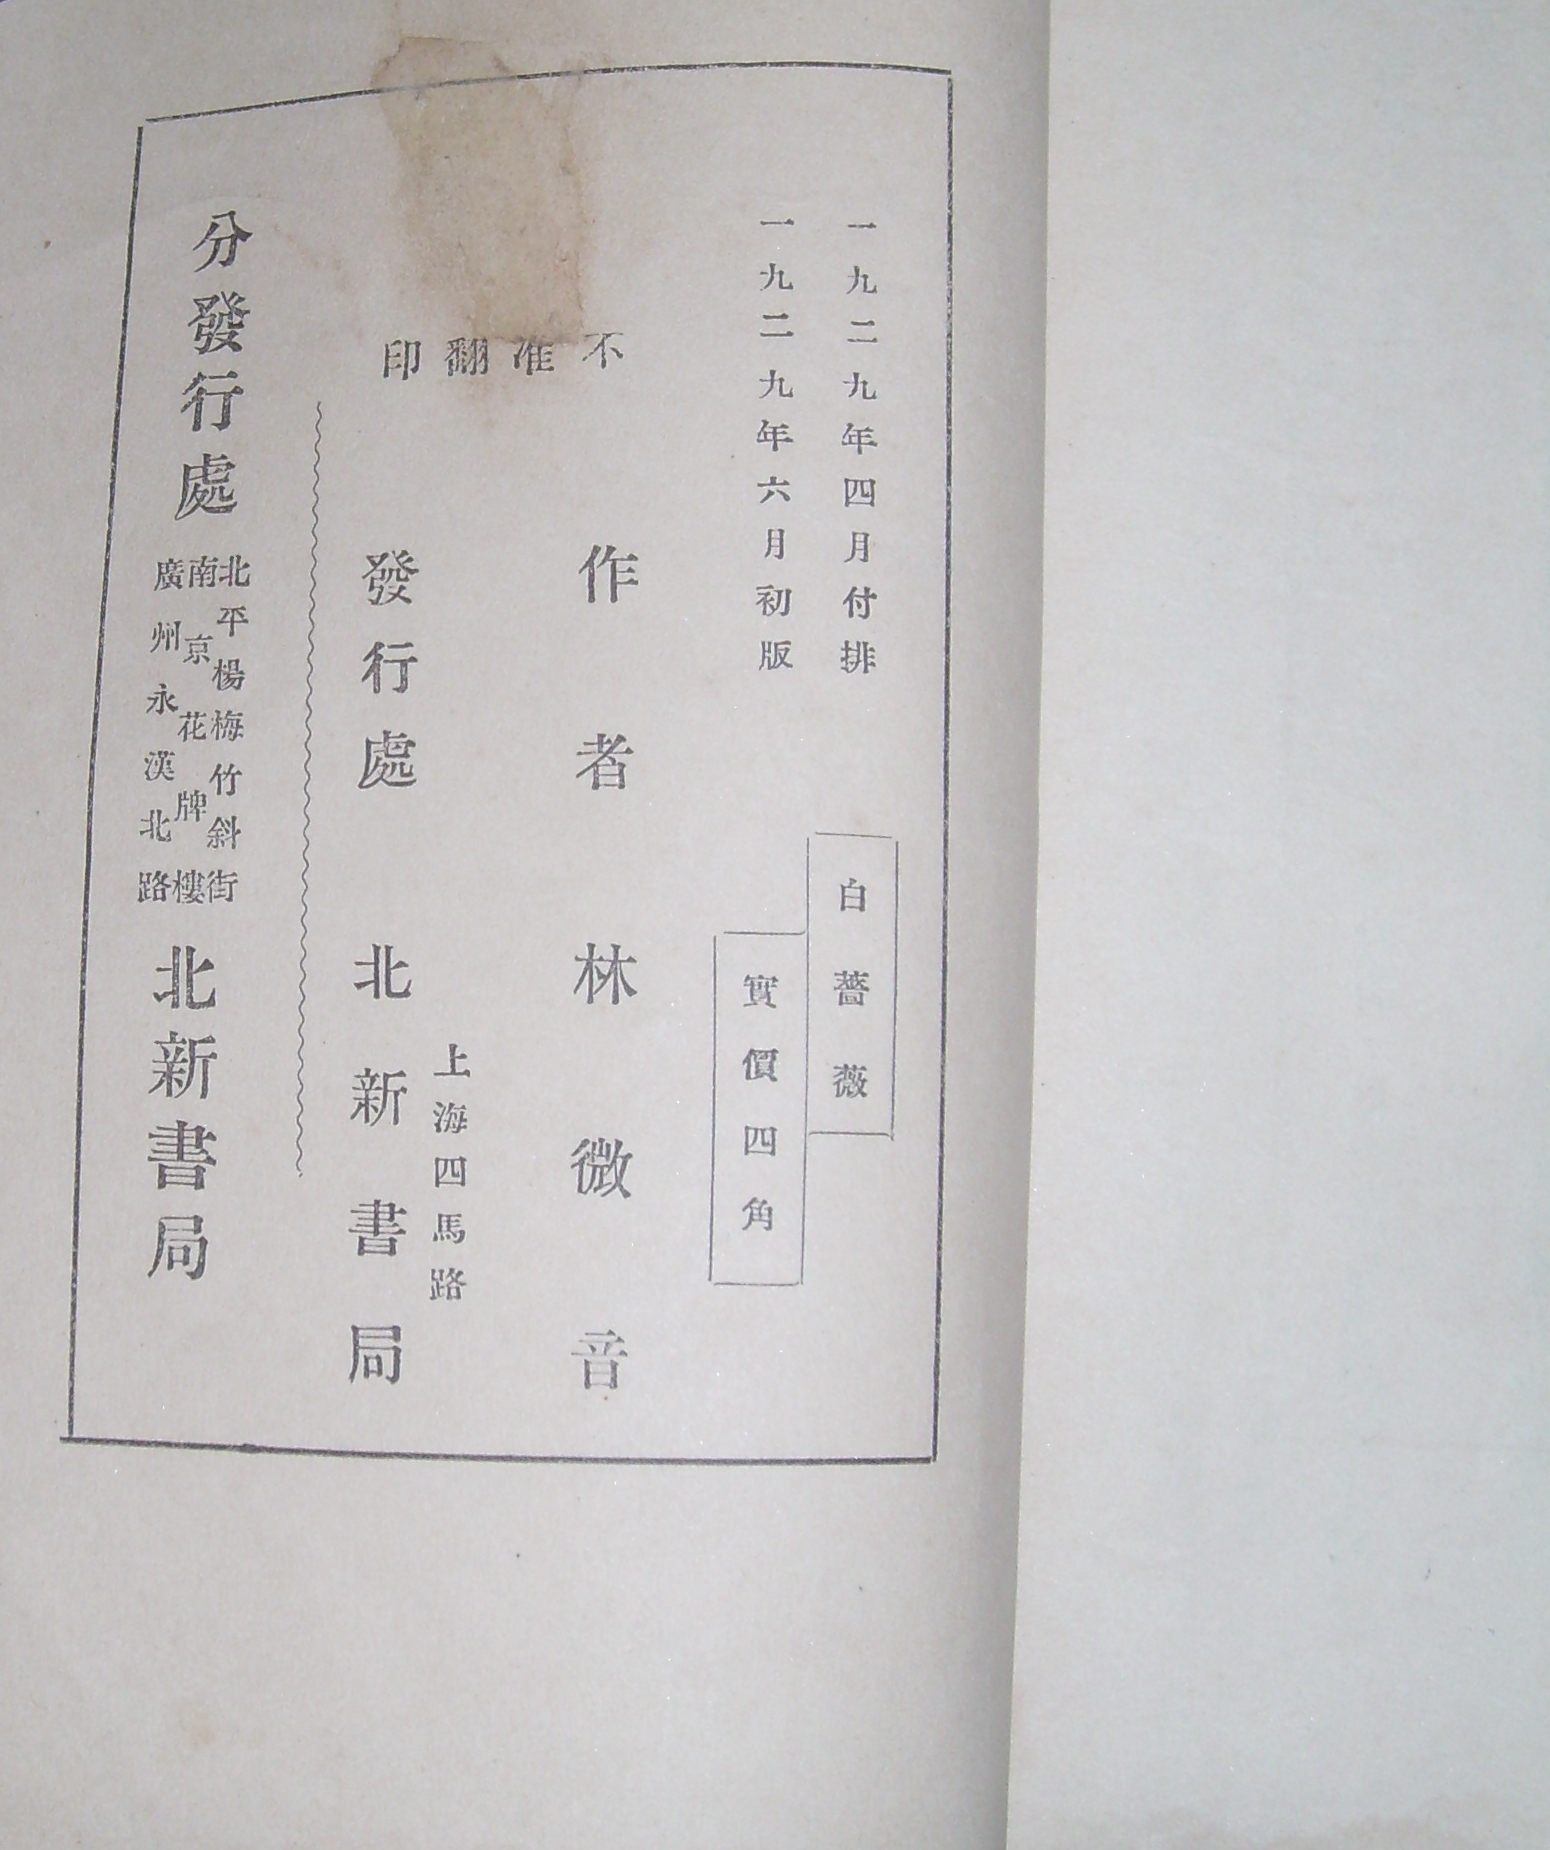 一九二九年四月付排
一九二九年六月初版
白薔薇
實價四角
不准翻印
作者 林微音
上海四馬路
發行處 北新書局
分發行處
北平楊梅竹斜街
南京花牌樓
廣州永漢北路
北新書局